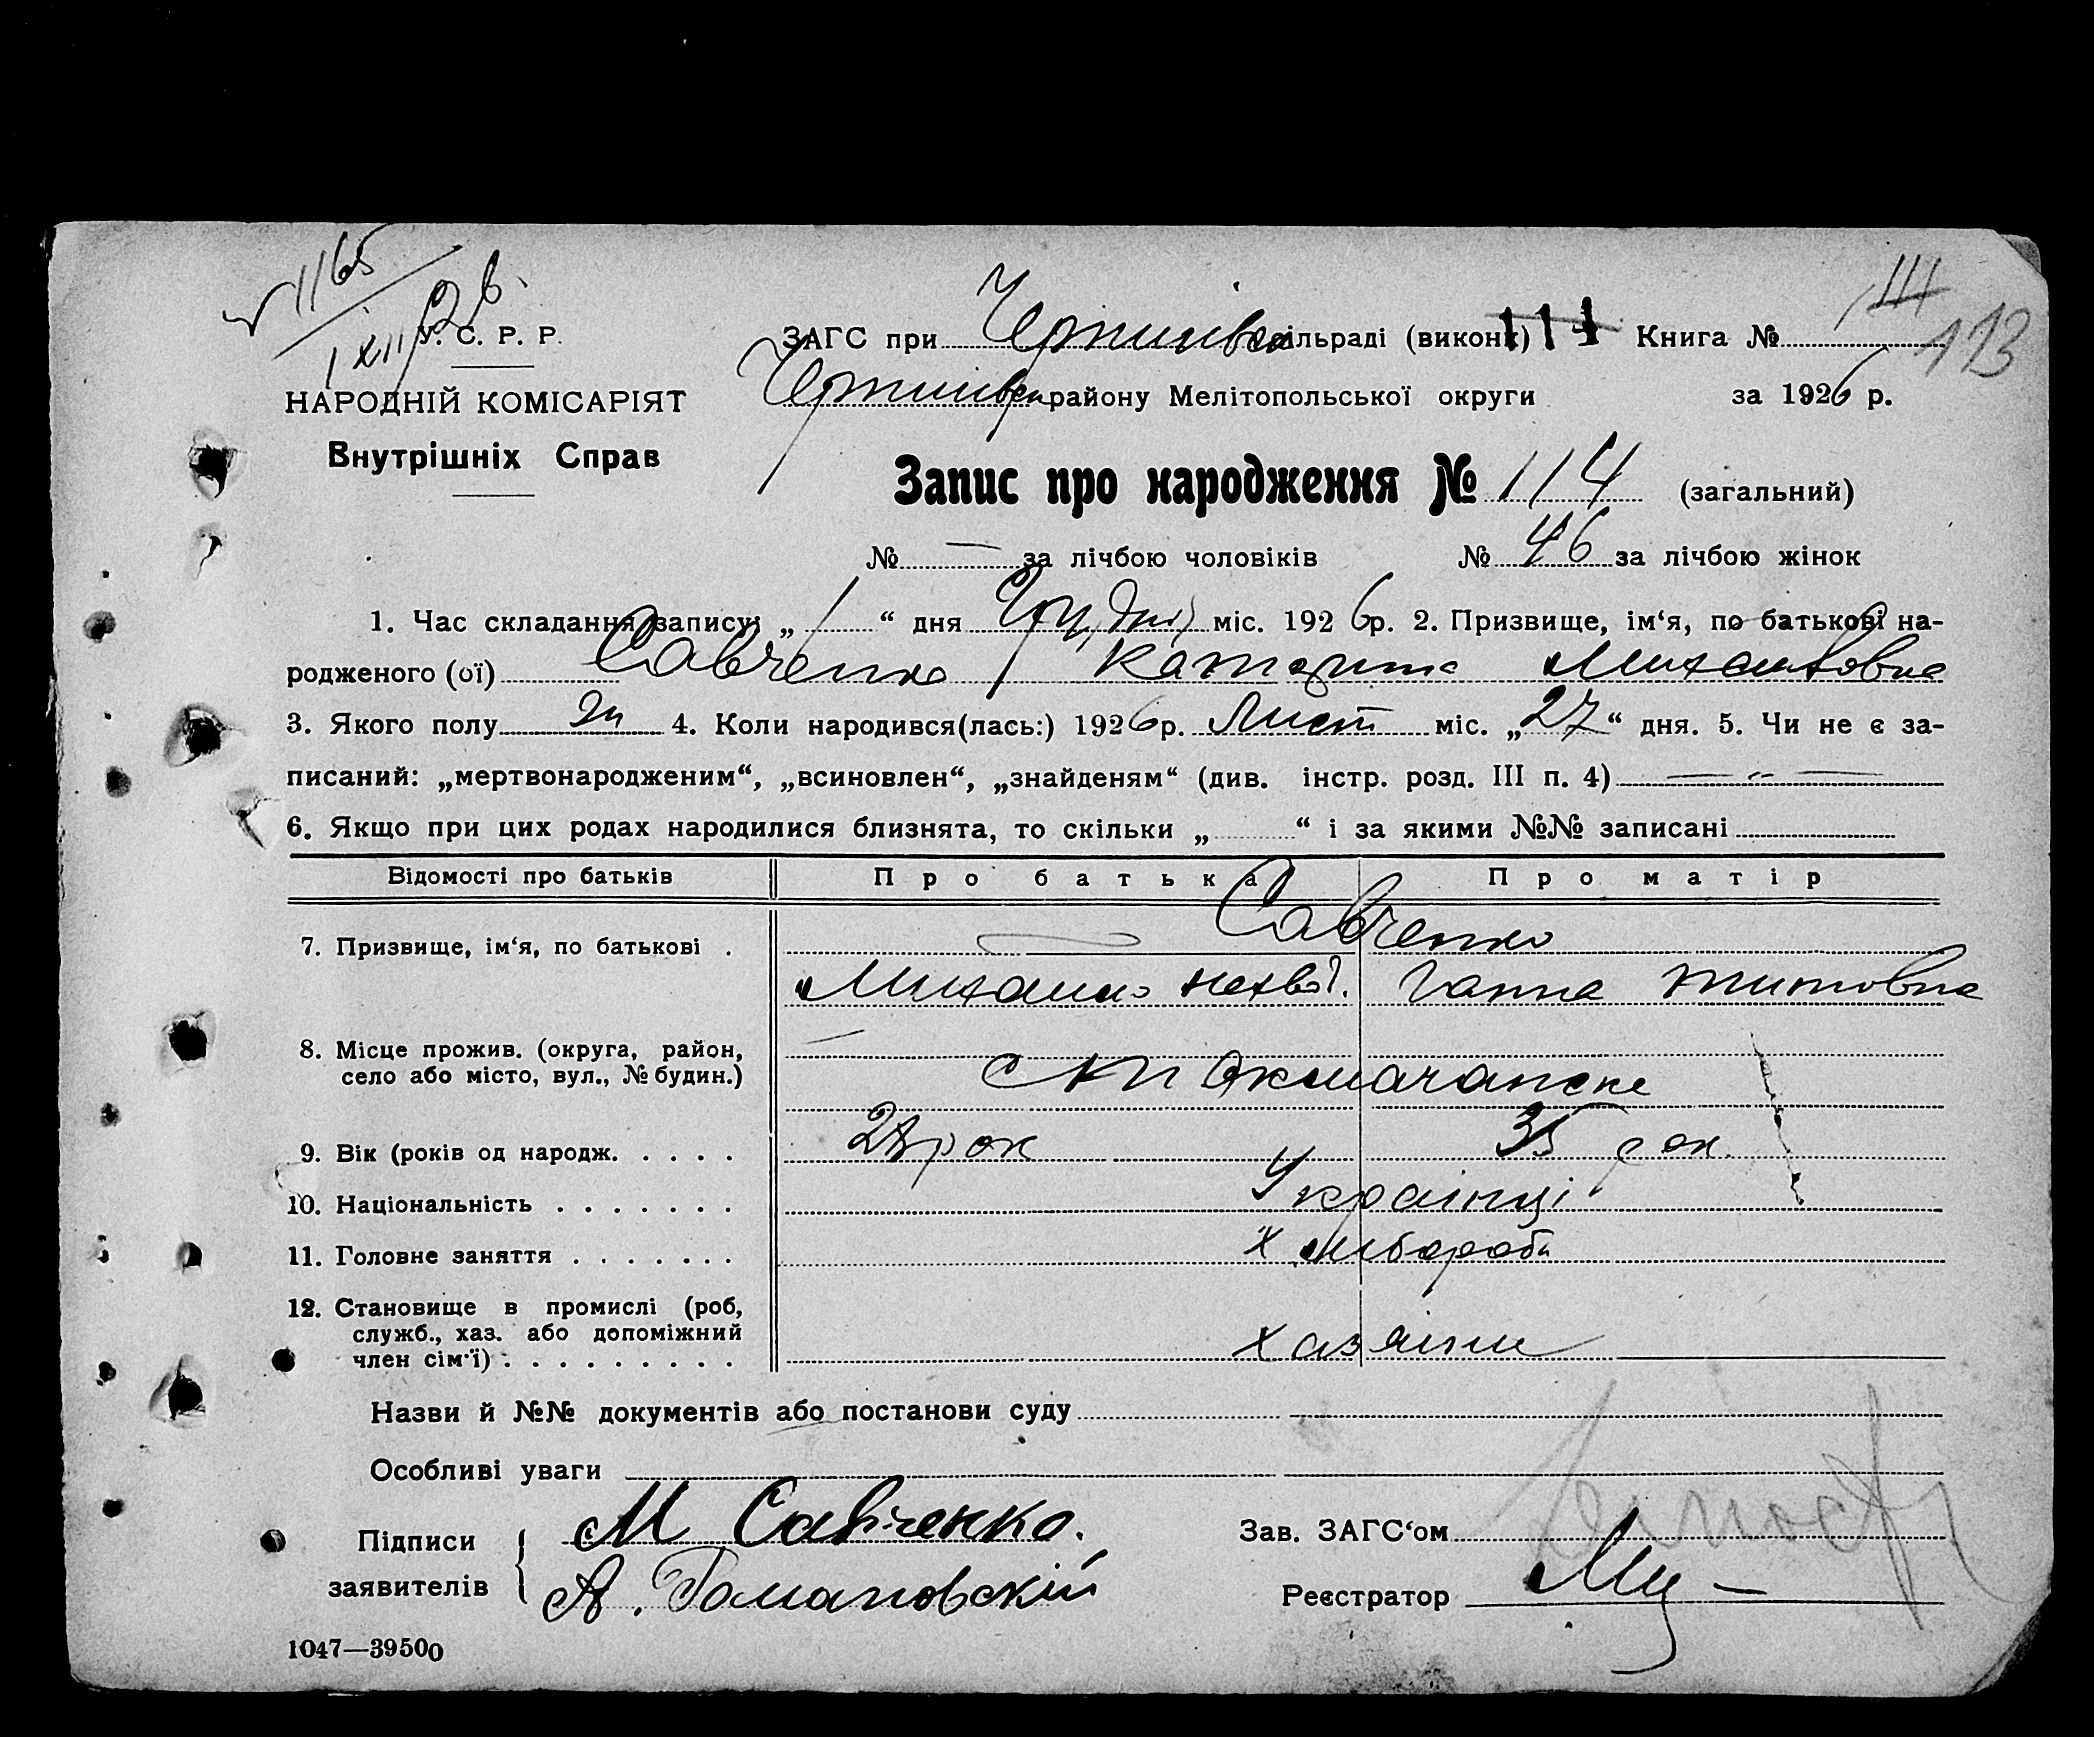 1165
1 XII 26.
111
113
У. С. Р. Р.
НАРОДНІЙ КОМІСАРІЯТ
Внутрішніх Справ
ЗАГС при сільраді (виконк) 114 Книга №
району Мелітопольської округи за 1926 р.
Запис про народження № 114 (загальний)
№ — за лічбою чоловіків № 46 за лічбою жінок
1. Час складання запису: „ 1 “ дня Грудня міс. 1926 р. 2. Призвище, ім‘я, по батькові на-
родженого (ої) Савченко Катерина Михайловна
3. Якого полу 4. Коли народився(лась:) 1926 р. Лист міс. „27“ дня. 5. Чи не є за-
писаний: „мертвонародженим“, „всиновлен“, „знайденям“ (див. інстр. розд. III п. 4) — „ —
6. Якщо при цих родах народилися близнята, то скільки „ “ і за якими №№ записані
Відомості про батьків Про батька Про матір
7. Призвище, ім‘я, по батькові . Савченко
Михайло Ганна Титовна
8. Місце прожив. (округа, район,
село або місто, вул., № будин.)
9. Вік (років од народж. . . . . рок 35 рок.
10. Національність . . . . . . . Українці
11. Головне заняття . . . . . . . Хлібороби
12. Становище в промислі (роб,
служб., хаз. або допоміжний
член сім‘ї) . . . . . . . . . хазяіни
Назви й №№ документів або постанови суду
Особливі уваги
Підписи
заявителів
М Савченко.
А. Романовскій
Зав. ЗАГС‘ом
Реєстратор
1047—39500